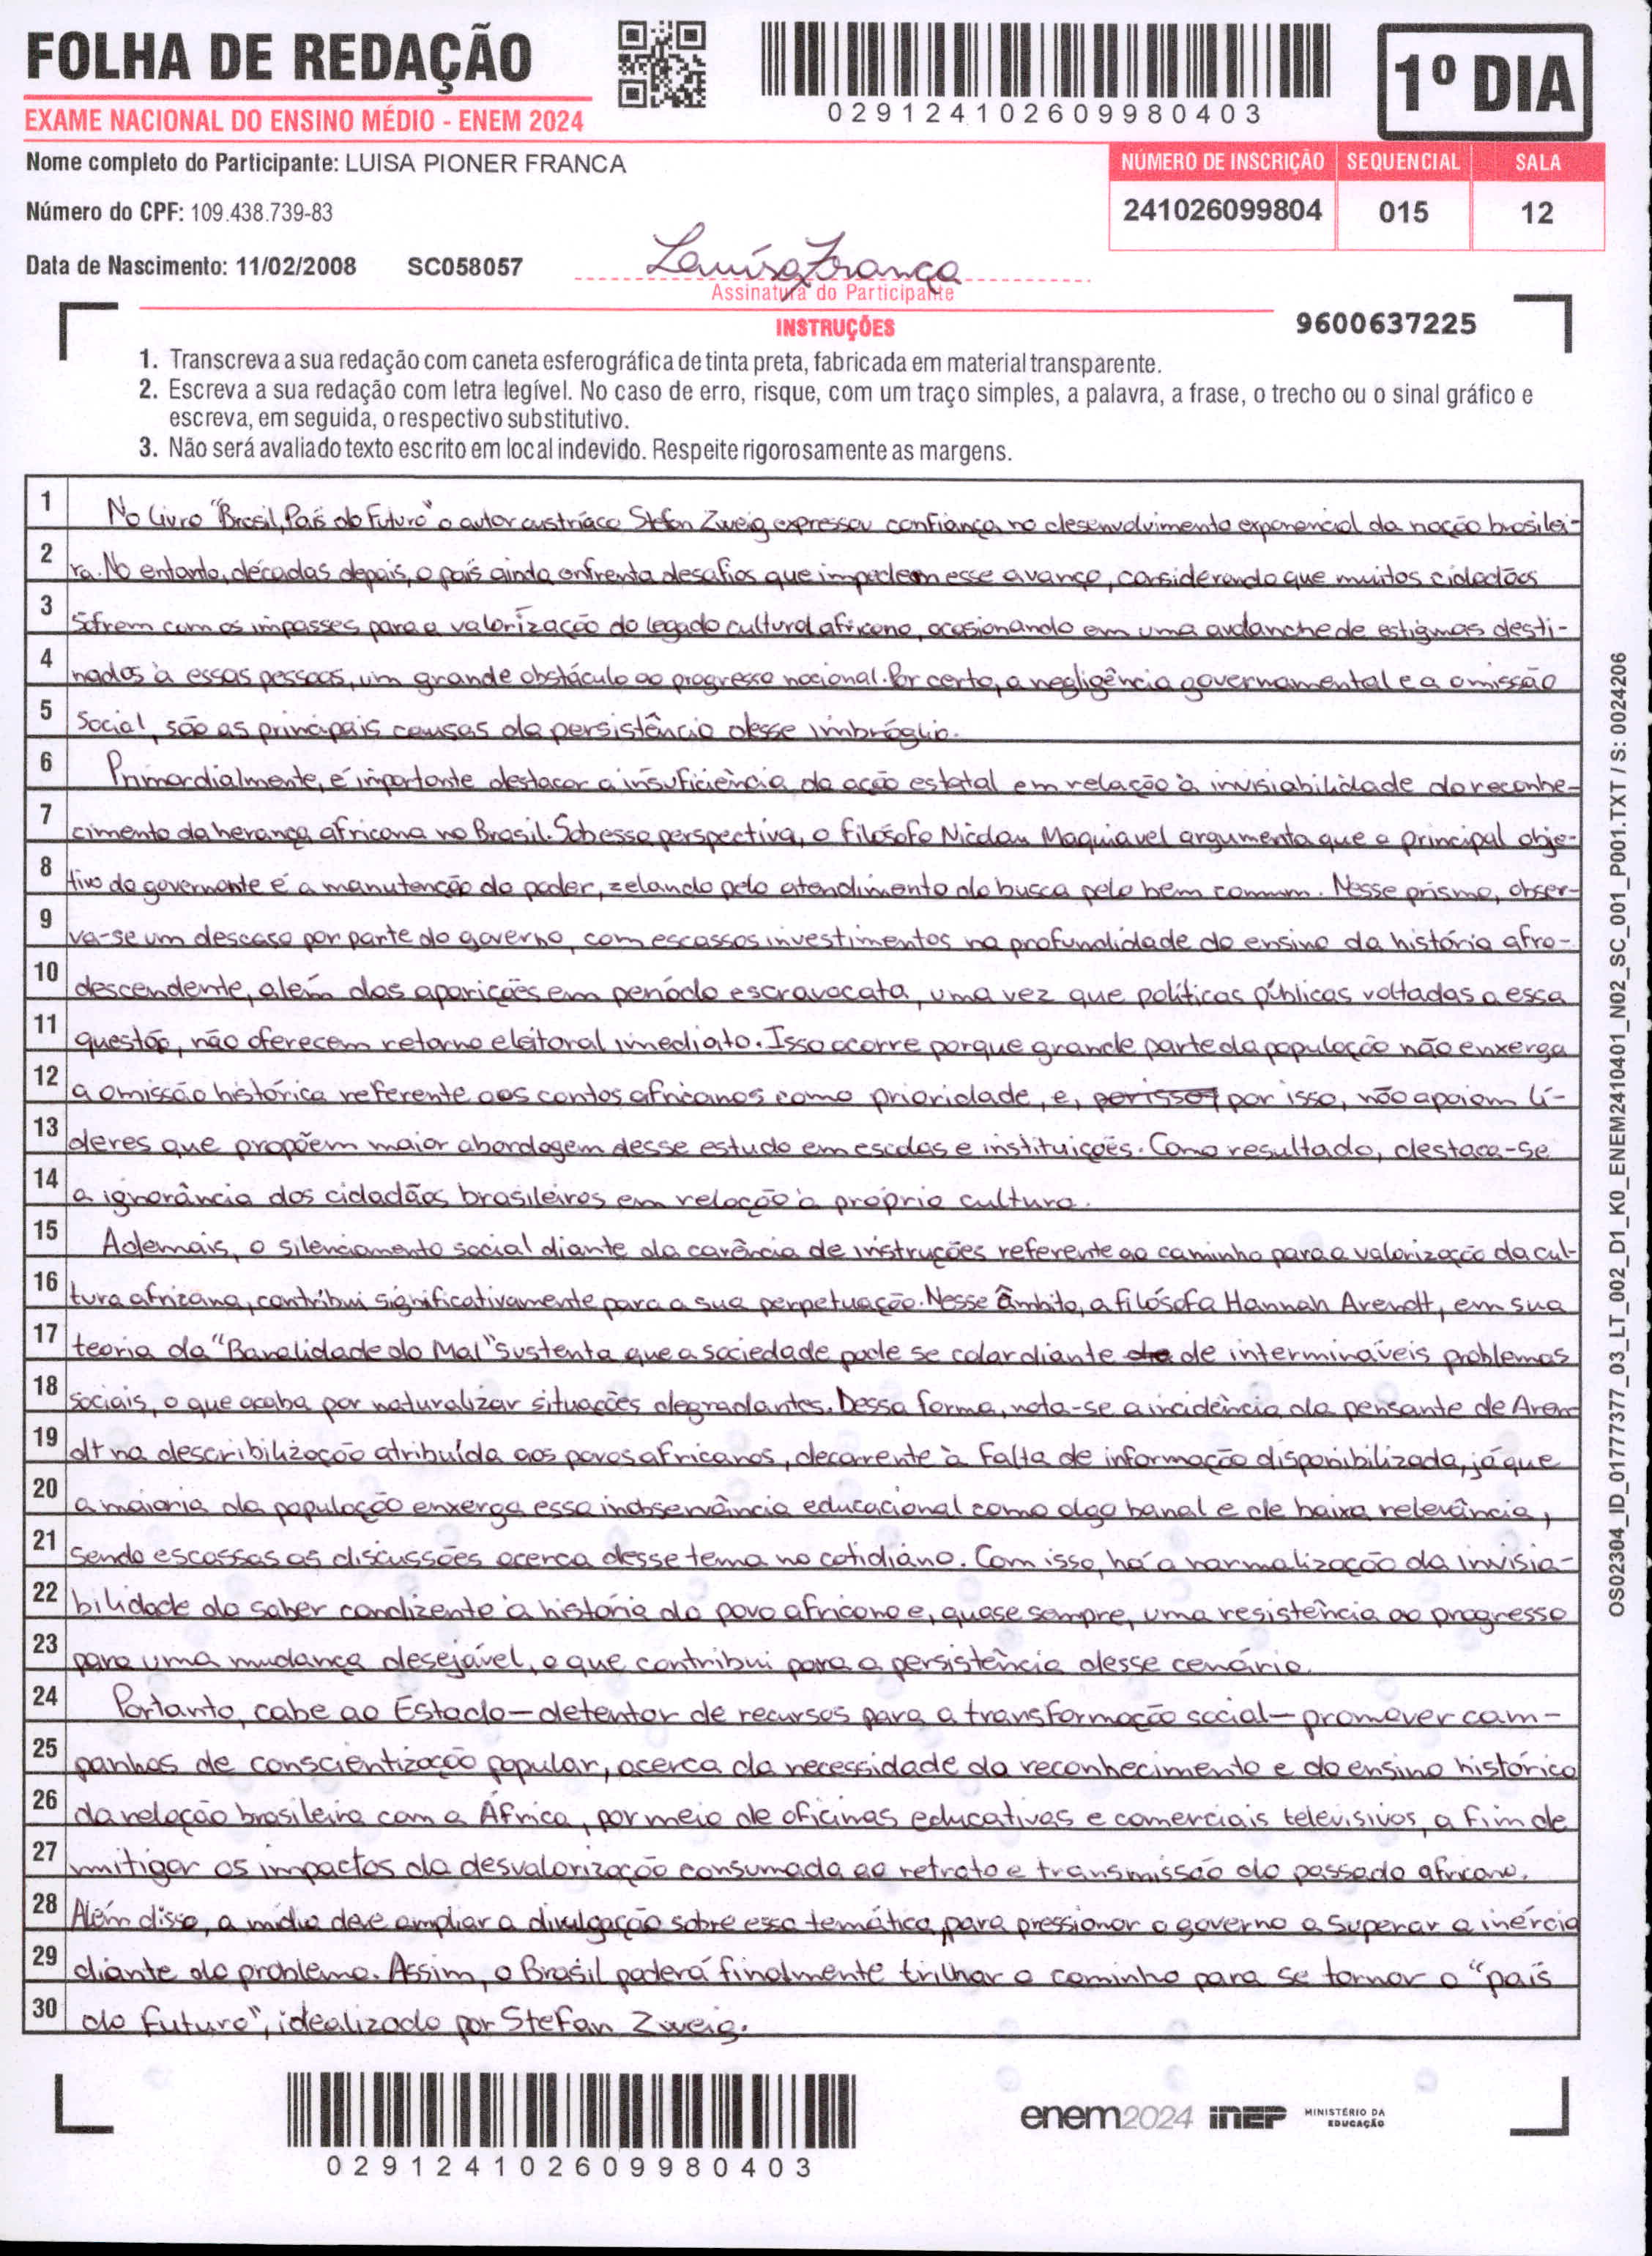 FOLHA DE REDAÇÃO
1º DIA
029124102609980403
EXAME NACIONAL DO ENSINO MÉDIO - ENEM 2024
Nome completo do Participante: LUISA PIONER FRANCA
NÚMERO DE INSCRIÇÃO SEQUENCIAL SALA
Número do CPF: 109.438.739-83
241026099804 015 12
Data de Nascimento: 11/02/2008 SC058057
Luísa França
Assinatura do Participante
INSTRUÇÕES
9600637225
1. Transcreva a sua redação com caneta esferográfica de tinta preta, fabricada em material transparente.
2. Escreva a sua redação com letra legível. No caso de erro, risque, com um traço simples, a palavra, a frase, o trecho ou o sinal gráfico e
escreva, em seguida, o respectivo substitutivo.
3. Não será avaliado texto escrito em local indevido. Respeite rigorosamente as margens.
1 No livro "Brasil, País do Futuro" o autor austríaco Stefan Zweig expressou confiança no desenvolvimento exponencial da nação brasilei-
2 ra. No entanto, décadas depois, o país ainda enfrenta desafios que impedem esse avanço, considerando que muitos cidadãos
3 sofrem com os impasses para a valorização do legado cultural africano, ocasionando em uma avalanche de estigmas desti-
4 nados à essas pessoas, um grande obstáculo ao progresso nacional. Por certo, a negligência governamental e a omissão
5 social, são as principais causas da persistência desse imbróglio.
6 Primordialmente, é importante destacar a insuficiência da ação estatal em relação à invisiabilidade do reconhe-
7 cimento da herança africana no Brasil. Sob essa perspectiva, o filósofo Nicolau Maquiavel argumenta que o principal obje-
8 tivo do governante é a manutenção do poder, zelando pelo atendimento da busca pelo bem comum. Nesse prisma, obser-
9 va-se um descaso por parte do governo, com escassos investimentos na profundidade do ensino da história afro-
10 descendente, além das aparições em período escravocata, uma vez que políticas públicas voltadas a essa
11 questão, não oferecem retorno eleitoral imediato. Isso ocorre porque grande parte da população não enxerga
12 a omissão histórica referente aos contos africanos como prioridade, e, porisso por isso, não apoiam lí-
13 deres que propõem maior abordagem desse estudo em escolas e instituições. Como resultado, destaca-se
14 a ignorância dos cidadãos brasileiros em relação à própria cultura.
15 Ademais, o silenciamento social diante da carência de instruções referente ao caminho para a valorização da cul-
16 tura africana, contribui significativamente para a sua perpetuação. Nesse âmbito, a filósofa Hannah Arendt, em sua
17 teoria da "Banalidade do Mal" sustenta que a sociedade pode se calar diante de intermináveis problemas
18 sociais, o que acaba por naturalizar situações degradantes. Dessa forma, nota-se a incidência da pensante de Aren
19 dt na describilização atribuída aos povos africanos, decorrente à falta de informação disponibilizada, já que
20 a maioria da população enxerga essa inobservância educacional como algo banal e de baixa relevância,
21 sendo escassas as discussões acerca desse tema no cotidiano. Com isso, há a normalização da invisia-
22 bilidade do saber condizente à história do povo africano e, quase sempre, uma resistência ao progresso
23 para uma mudança desejável, o que contribui para a persistência desse cenário.
24 Portanto, cabe ao Estado — detentor de recursos para a transformação social — promover cam-
25 panhas de conscientização popular, acerca da necessidade do reconhecimento e do ensino histórico
26 da relação brasileira com a África, por meio de oficinas educativas e comerciais televisivos, a fim de
27 mitigar os impactos da desvalorização consumada ao retrato e transmissão do passado africano.
28 Além disso, a mídia deve ampliar a divulgação sobre essa temática, para pressionar o governo a superar a inércia
29 diante do problema. Assim, o Brasil poderá finalmente trilhar o caminho para se tornar o "país
30 do futuro", idealizado por Stefan Zweig.
029124102609980403
enem2024 inep MINISTÉRIO DA EDUCAÇÃO
OS02304_ID_01777377_03_LT_002_D1_K0_ENEM2410401_N02_SC_001_P001.TXT / S: 0024206